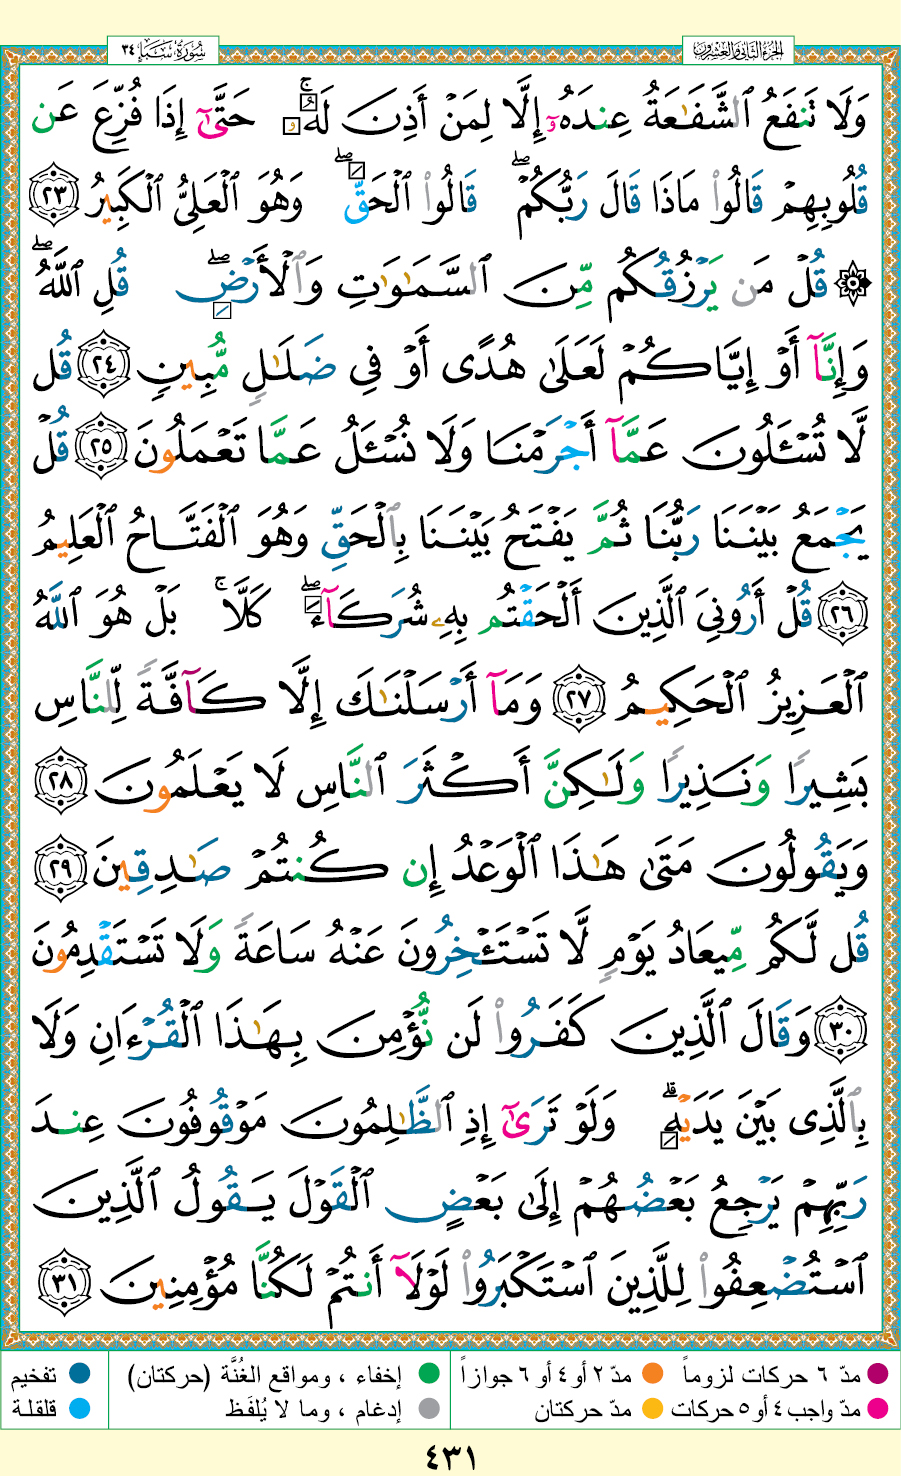 الجزء الثاني والعشرون
سُورَةُ سَبَإٍ ٣٤
وَلَا تَنفَعُ ٱلشَّفَـٰعَةُ عِندَهُۥٓ إِلَّا لِمَنْ أَذِنَ لَهُۥ ۚ حَتَّىٰٓ إِذَا فُزِّعَ عَن
قُلُوبِهِمْ قَالُوا۟ مَاذَا قَالَ رَبُّكُمْ ۖ قَالُوا۟ ٱلْحَقَّ ۖ وَهُوَ ٱلْعَلِىُّ ٱلْكَبِيرُ ٢٣
۞ قُلْ مَن يَرْزُقُكُم مِّنَ ٱلسَّمَـٰوَٰتِ وَٱلْأَرْضِ ۖ قُلِ ٱللَّهُ ۖ
وَإِنَّآ أَوْ إِيَّاكُمْ لَعَلَىٰ هُدًى أَوْ فِى ضَلَـٰلٍ مُّبِينٍ ٢٤ قُل
لَّا تُسْـَٔلُونَ عَمَّآ أَجْرَمْنَا وَلَا نُسْـَٔلُ عَمَّا تَعْمَلُونَ ٢٥ قُلْ
يَجْمَعُ بَيْنَنَا رَبُّنَا ثُمَّ يَفْتَحُ بَيْنَنَا بِٱلْحَقِّ وَهُوَ ٱلْفَتَّاحُ ٱلْعَلِيمُ
٢٦ قُلْ أَرُونِىَ ٱلَّذِينَ أَلْحَقْتُم بِهِۦ شُرَكَآءَ ۖ كَلَّا ۚ بَلْ هُوَ ٱللَّهُ
ٱلْعَزِيزُ ٱلْحَكِيمُ ٢٧ وَمَآ أَرْسَلْنَـٰكَ إِلَّا كَآفَّةً لِّلنَّاسِ
بَشِيرًا وَنَذِيرًا وَلَـٰكِنَّ أَكْثَرَ ٱلنَّاسِ لَا يَعْلَمُونَ ٢٨
وَيَقُولُونَ مَتَىٰ هَـٰذَا ٱلْوَعْدُ إِن كُنتُمْ صَـٰدِقِينَ ٢٩
قُل لَّكُم مِّيعَادُ يَوْمٍ لَّا تَسْتَـْٔخِرُونَ عَنْهُ سَاعَةً وَلَا تَسْتَقْدِمُونَ
٣٠ وَقَالَ ٱلَّذِينَ كَفَرُوا۟ لَن نُّؤْمِنَ بِهَـٰذَا ٱلْقُرْءَانِ وَلَا
بِٱلَّذِى بَيْنَ يَدَيْهِ ۗ وَلَوْ تَرَىٰٓ إِذِ ٱلظَّـٰلِمُونَ مَوْقُوفُونَ عِندَ
رَبِّهِمْ يَرْجِعُ بَعْضُهُمْ إِلَىٰ بَعْضٍ ٱلْقَوْلَ يَقُولُ ٱلَّذِينَ
ٱسْتُضْعِفُوا۟ لِلَّذِينَ ٱسْتَكْبَرُوا۟ لَوْلَآ أَنتُمْ لَكُنَّا مُؤْمِنِينَ ٣١
مدّ ٦ حركات لزوماً مدّ ٢ أو ٤ أو ٦ جوازاً إخفاء ، ومواقع الغُنَّة (حركتان) تفخيم
مدّ واجب ٤ أو ٥ حركات مدّ حركتان إدغام ، وما لا يُلفَظ قلقلة
٤٣١